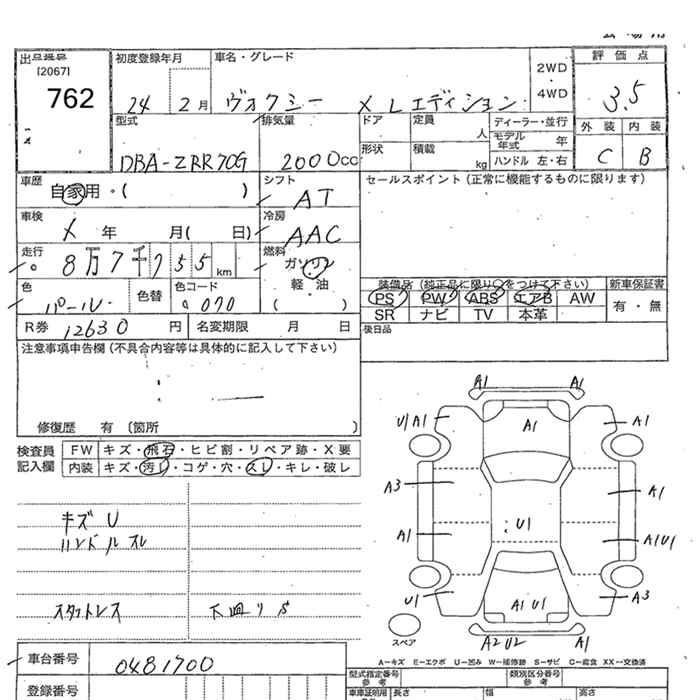 出品番号 初度登録年月 車名・グレード 評価点
[2067]
762 24 2月 ヴォクシー XLエディション 2WD・4WD 3.5
型式 排気量 ドア 定員 人 ディーラー・並行 外装 内装
モデル年式 年
DBA-ZRR70G 2000cc 形状 積載 kg ハンドル 左・右 C B
車歴 自家用・( ) シフト AT セールスポイント(正常に機能するものに限ります)
車検 年 月( 日) 冷房 AAC
走行 8万7千755km 燃料 ガソリン
軽・油
( )
装備品(純正品に限り○をつけて下さい) 新車保証書
PS PW ABS エアB AW 有・無
SR ナビ TV 本革
色 パール 色替 色コード 070
後日品
R券 12630円 名変期限 月 日
注意事項申告欄(不具合内容等は具体的に記入して下さい)
修復歴 有 〔箇所 〕
検査員記入欄 FW キズ・飛石・ヒビ割・リペア跡・X要
内装 キズ・汚レ・コゲ・穴・スレ・キレ・破レ
キズ U
ハンドルスレ
スタットレス 下廻りS
A1 A1
U1 A1 A1 A1
A3 A1
A1 U1 A1U1
U1 A1 U1 A3
A2 U2 A1
スペア
A-キズ E-エクボ U-凹み W-補修跡 S-サビ C-腐食 XX-交換済
車台番号 0481700
型式指定番号 参考 類別区分番号 参考
登録番号 車車証明用 長さ 幅 高さ